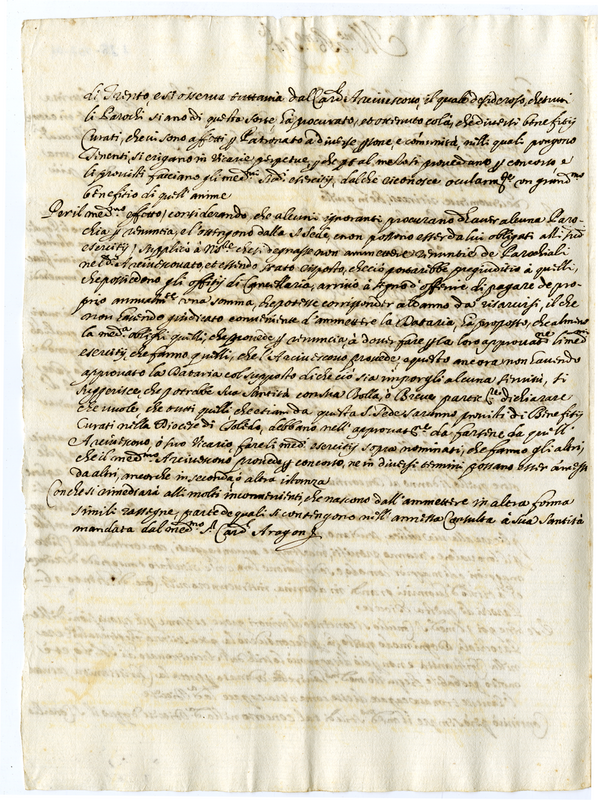 di Trento e si osserva tuttavia dal Card.l Arcivescovo, il quale desideroso, che tutti
li Parochi siano di questa sorte ha procurato, et ottenuto colà, che diversi benefitij
Curati, che vi sono affetti p Patronato a diverse psone, e cōmunità, nelli quali pongono
Tenenti si erigano in Vicarie perpetue, p che pt al me provedano p concorso e
li provisti facciano gli med.mi esercitij, dal che riconosce ocularm.te un grand.mo
beneficio di quell'anime
Per il med.mo effetto, considerando, che alcuni ignoranti, procurano d'haver alcuna Paro-
chia p renuncia, el'ottengono dalla S. Sede, e non possono esser da lui obligati alli sud.i
esercitij, supplicò à N. che si degnasse non ammettere renuntie de Parochiali
nel d.o Arcivescovato, et essendo stato risposto, che ciò potrebbe pregiuditio à quelli,
che possiedono gli offitij di Cancellaria, arrivò à segno d'offerire di pagare de pro-
prio annualm.te una somma, che potesse corrisponder al danno da risarcirsi, il che
non havendo giudicato conveniente d'ammettere la Dataria, ha proposto, che almeno
la med.a oblighi quelli, che provede p renuncia, à dover fare p la loro approvat.ne li med.mi
esercitij, che fanno quelli, che l'Arcivescovo provede, a questo ancora non havendo
approvato la Dataria col supposto di che ciò sia imporgli alcuna servitù, si
suggerisce, che potrebbe Sua Santità con una Bolla, ò Breve dichiarare
che vuole, che tutti quelli che etiam da questa S. Sede saranno provisti di Benefitij
Curati nella Diocese di Toledo, debbano nell'approvat.ne da farsene da quell'
Arcivescovo, ò suo Vicario fare li med.mi esercitij sopra nominati, che fanno gli altri,
che il med.mo Arcivescovo provede p concorso, ne in diversi termini possano esser ammessi
da altri, ancorche in secondo ò altra istanza
Con che si rimediarà alli molti inconvenienti, che nascono dall'ammettere in altra forma
simili rassegne, parte de quali si contengono nell'annessa Consulta à Sua Santità
mandata dal med.mo S.r Card.l Aragon